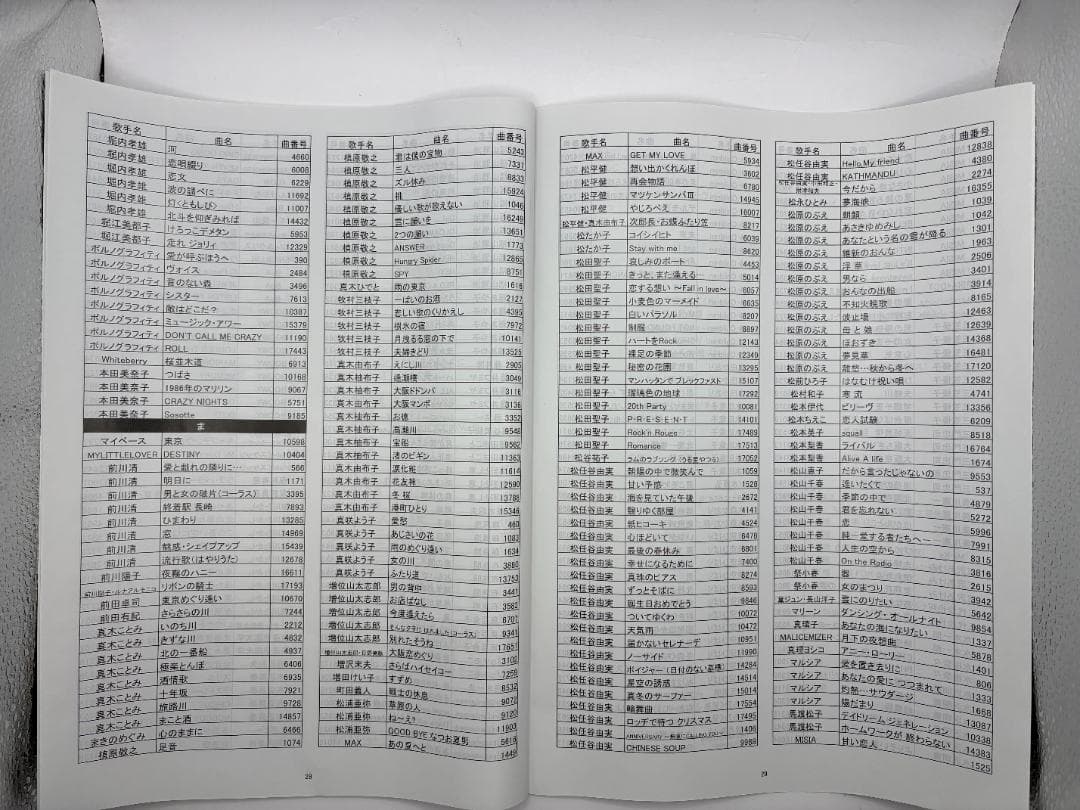 歌手名 曲名 曲番号
堀内孝雄 河 4660
堀内孝雄 恋唄綴り 6008
堀内孝雄 恋文 6229
堀内孝雄 波の調べに 11692
堀内孝雄 灯(ともしび) 11007
堀内孝雄 北斗を仰ぎみれば 14432
堀江美都子 けろっこデメタン 5953
堀江美都子 走れ ジョリィ 12329
ポルノグラフィティ 愛が呼ぶほうへ 390
ポルノグラフィティ ヴォイス 2484
ポルノグラフィティ 音のない森 3496
ポルノグラフィティ シスター 7613
ポルノグラフィティ 敵はどこだ? 10387
ポルノグラフィティ ミュージック・アワー 15379
ポルノグラフィティ DON'T CALL ME CRAZY 11190
ポルノグラフィティ ROLL 17443
Whiteberry 桜並木道 6913
本田美奈子 つばさ 10168
本田美奈子 1986年のマリリン 9067
本田美奈子 CRAZY NIGHTS 5751
本田美奈子 Sosotte 9185
ま
マイペース 東京 10598
MYLITTLELOVER DESTINY 10404
前川清 愛と戯れの隣りに… 566
前川清 明日に 1171
前川清 男と女の破片(コーラス) 3395
前川清 終着駅 長崎 7893
前川清 ひまわり 13285
前川清 窓 14969
前川清 魅惑・シェイプアップ 15439
前川清 流行歌(はやりうた) 12678
前川陽子 夜霧のハニー 16611
リボンの騎士 17193
前田卓司 東京めぐり逢い 10670
前田有紀 さらさらの川 7244
真木ことみ いのち川 2212
真木ことみ きずな川 4832
真木ことみ 北の一番船 4937
真木ことみ 極楽とんぼ 6406
真木ことみ 酒情歌 6935
真木ことみ 十年坂 7921
真木ことみ 旅路川 9728
真木ことみ まこと酒 14857
まきのめぐみ 心のままに 6466
槙原敬之 足音 1074
28
歌手名 曲名 曲番号
槙原敬之 君は僕の宝物 5243
槙原敬之 三人 7331
槙原敬之 ズル休み 8833
槙原敬之 桃 15924
槙原敬之 優しい歌が歌えない 1046
槙原敬之 雪に願いを 16249
槙原敬之 2つの願い 13651
槙原敬之 ANSWER 1773
槙原敬之 Hungry Spider 12865
槙原敬之 SPY 8751
真木ひでと 雨の東京 1616
牧村三枝子 一ぱいのお酒 2127
牧村三枝子 悲しい歌のくりかえし 4395
牧村三枝子 樹氷の宿 7972
牧村三枝子 月洩るる窓の下で 10141
牧村三枝子 夫婦きどり 13525
真木由布子 えにし川 2905
真木柚布子 逢瀬橋 3049
真木柚布子 大阪ドドンパ 3116
真木由布子 大阪マンボ 3136
真木柚布子 お徳 3352
真木柚布子 高瀬川 9548
真木柚布子 宝船 9582
真木柚布子 渚のピギン 11363
真木由布子 涙化粧 11614
真木由布子 花友禅 12690
真木由布子 冬桜 13788
真木由布子 港町ひとり 15346
真咲よう子 愛愁 460
真咲よう子 あじさいの花 1083
真咲よう子 雨のめぐり逢い 1634
真咲よう子 女の川 3880
真咲よう子 ふたり道 13753
増位山太志郎 男の背中 3441
増位山太志郎 お店ばなし 3582
増位山太志郎 今度逢えたら 6707
増位山太志郎 9341
増位山太志郎 別れたそうね 17651
大阪恋めぐり 3102
増沢末夫 さらばハイセイコー 7258
増田けい子 すずめ 8532
町田義人 戦士の休息 9072
松浦亜弥 草原の人 9120
松浦亜弥 ね〜え? 11903
松浦亜弥 GOOD BYE なつお夏男
MAX あの夏へと
歌手名 曲名 曲番号
MAX GET MY LOVE 5934
松平健 想い出かくれんぼ 3602
松平健 再会物語 6780
松平健 マツケンサンバⅢ 14945
松平健 やじろべえ 16007
松平健・真木由布子 次郎長・お蝶ふたり笠 8217
松たか子 コイシイヒト 6039
松たか子 Stay with me 8620
松田聖子 哀しみのボート 4453
松田聖子 きっと、また逢える… 5014
松田聖子 恋する想い ～Fall in love～ 6057
松田聖子 小麦色のマーメイド 6635
松田聖子 白いパラソル 8207
松田聖子 制服 8897
松田聖子 ハートをRock 12143
松田聖子 裸足の季節 12349
松田聖子 秘密の花園 13295
松田聖子 マンハッタンで ブレックファスト 15107
松田聖子 瑠璃色の地球 17292
松田聖子 20th Party 10081
松田聖子 P・R・E・S・E・N・T 14101
松田聖子 Rock'n Rouge 17489
松田聖子 Romance 17513
松谷祐子 ラムのラブソング(うる星やつら) 17052
松任谷由実 朝陽の中で微笑んで 1059
松任谷由実 甘い予感 1528
松任谷由実 海を見ていた午後 2672
松任谷由実 翳りゆく部屋 4141
松任谷由実 紙ヒコーキ 4524
松任谷由実 心ほどいて 6478
松任谷由実 最後の春休み 6801
松任谷由実 幸せになるために 7400
松任谷由実 真珠のピアス 8274
松任谷由実 ずっとそばに 8593
松任谷由実 誕生日おめでとう 9846
松任谷由実 ついてゆくわ 10072
松任谷由実 天気雨 10472
松任谷由実 届かないセレナーデ 10951
松任谷由実 ノーサイド 11990
松任谷由実 ボイジャー(日付のない墓標) 14284
松任谷由実 星空の誘惑 14514
松任谷由実 真冬のサーファー 15014
松任谷由実 輪舞曲 17554
松任谷由実 ロッヂで待つ クリスマス 17495
松任谷由実 ANNIVERSARY 1406
松任谷由実 CHINESE SOUP 9988
29
歌手名 曲名 曲番号
松任谷由実 Hello,My friend 12838
松任谷由実 KATHMANDU 4380
松任谷由実・小田和正・財津和夫 今だから 2274
松永ひとみ 夢海峡 16355
松原のぶえ 朝顔 1039
松原のぶえ あさきゆめみし 1042
松原のぶえ あなたという名の雪が降る 1301
松原のぶえ 維新のおんな 1963
松原のぶえ 浮草 2506
松原のぶえ 男なら 3401
松原のぶえ おんなの出船 3914
松原のぶえ 不知火挽歌 8165
松原のぶえ 波止場 12463
松原のぶえ 母と娘 12639
松原のぶえ ほおずき 14368
松原のぶえ 夢見草 16481
松原のぶえ 龍悠…秋から冬へ 17120
松前ひろ子 はなむけ祝い唄 12582
松村和子 寒流 4741
松本伊代 ビリーヴ 13356
松本ちえこ 恋人試験 6209
松本英子 squall 8518
松本梨香 ライバル 16764
松本梨香 Alive A life 1674
松山恵子 だから言ったじゃないの 9553
松山千春 逢いたくて 537
松山千春 季節の中で 4879
松山千春 君を忘れない 5272
松山千春 恋 5996
松山千春 純―愛する者たちへ― 7991
松山千春 人生の空から 8315
松山千春 On the Radio 3816
祭小春
祭小春 女のまつり 2615
黛ジュン・長山洋子 雲にのりたい 3942
マリーン ダンシング・オールナイト 5642
真璃子 あなたの海になりたい 9854
MALICEMIZER 月下の夜想曲 1337
真理ヨシコ アニー・ローリー 5878
マルシア 愛を置き去りに 806
マルシア あなたの愛に つつまれて 1333
マルシア 灼熱…サウダージ 1658
マルシア 陽だまり 13087
馬渡松子 デイドリーム ジェネレーション 10338
馬渡松子 ホームワークが 終わらない 14383
MISIA 甘い恋人 1525